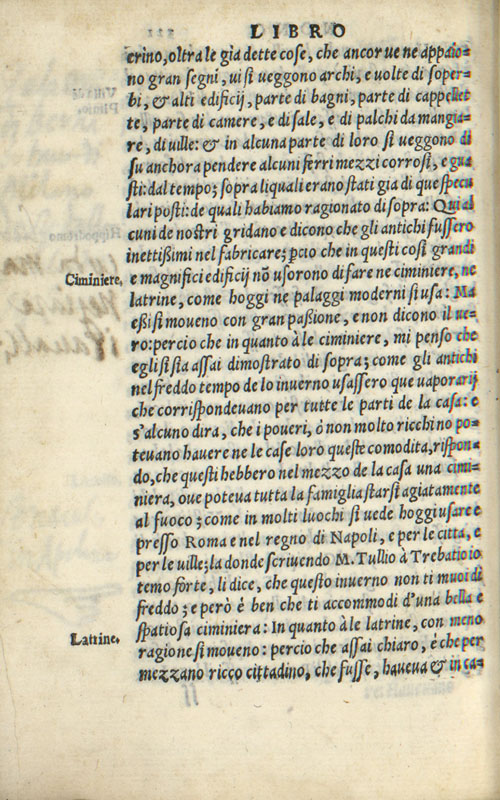 LIBRO
erino, oltra le gia dette cose, che ancor ue ne appaio=
no gran segni, ui si ueggono archi, e uolte di soper=
bi, & alti edificij, parte di bagni, parte di cappellet
te, parte di camere, e di sale, e di palchi da mangia=
re, di uille: & in alcuna parte di loro si ueggono di
su anchora pendere alcuni ferri mezzi corrosi, e gua
sti: dal tempo; sopra liquali erano stati gia di que specu
lari posti: de quali habiamo ragionato di sopra: Qui al
cuni de nostri gridano e dicono che gli antichi fussero
inettißimi nel fabricare; ꝑcio che in questi così grandi
Ciminiere.
e magnifici edificij nō usorono di fare ne ciminiere, ne
latrine, come hoggi ne palaggi moderni si usa: Ma
eßi si moueno con gran paßione, e non dicono il ue=
ro: percio che in quanto à le ciminiere, mi penso che
egli si sia assai dimostrato di sopra; come gli antichi
nel freddo tempo de lo inuerno usassero que uaporarij
che corrispondeuano per tutte le parti de la casa: e
s'alcuno dira, che i poueri, ò non molto ricchi no po=
teuano hauere ne le case loro queste comodita, rispon=
do, che questi hebbero nel mezzo de la casa una cimi=
niera, oue poteua tutta la famiglia starsi agiatamente
al fuoco; come in molti luochi si uede hoggi usare e
presso Roma e nel regno di Napoli, e per le citta, e
per le uille; la donde scriuendo M. Tullio à Trebatio io
temo forte, li dice, che questo inuerno non ti muoi di
freddo; e però è ben che ti accommodi d'una bella e
Latrine.
spatiosa ciminiera: In quanto à le latrine, con meno
ragione si moueno: percio che assai chiaro, è che per
mezzano ricco cittadino, che fusse, haueua & in ca=